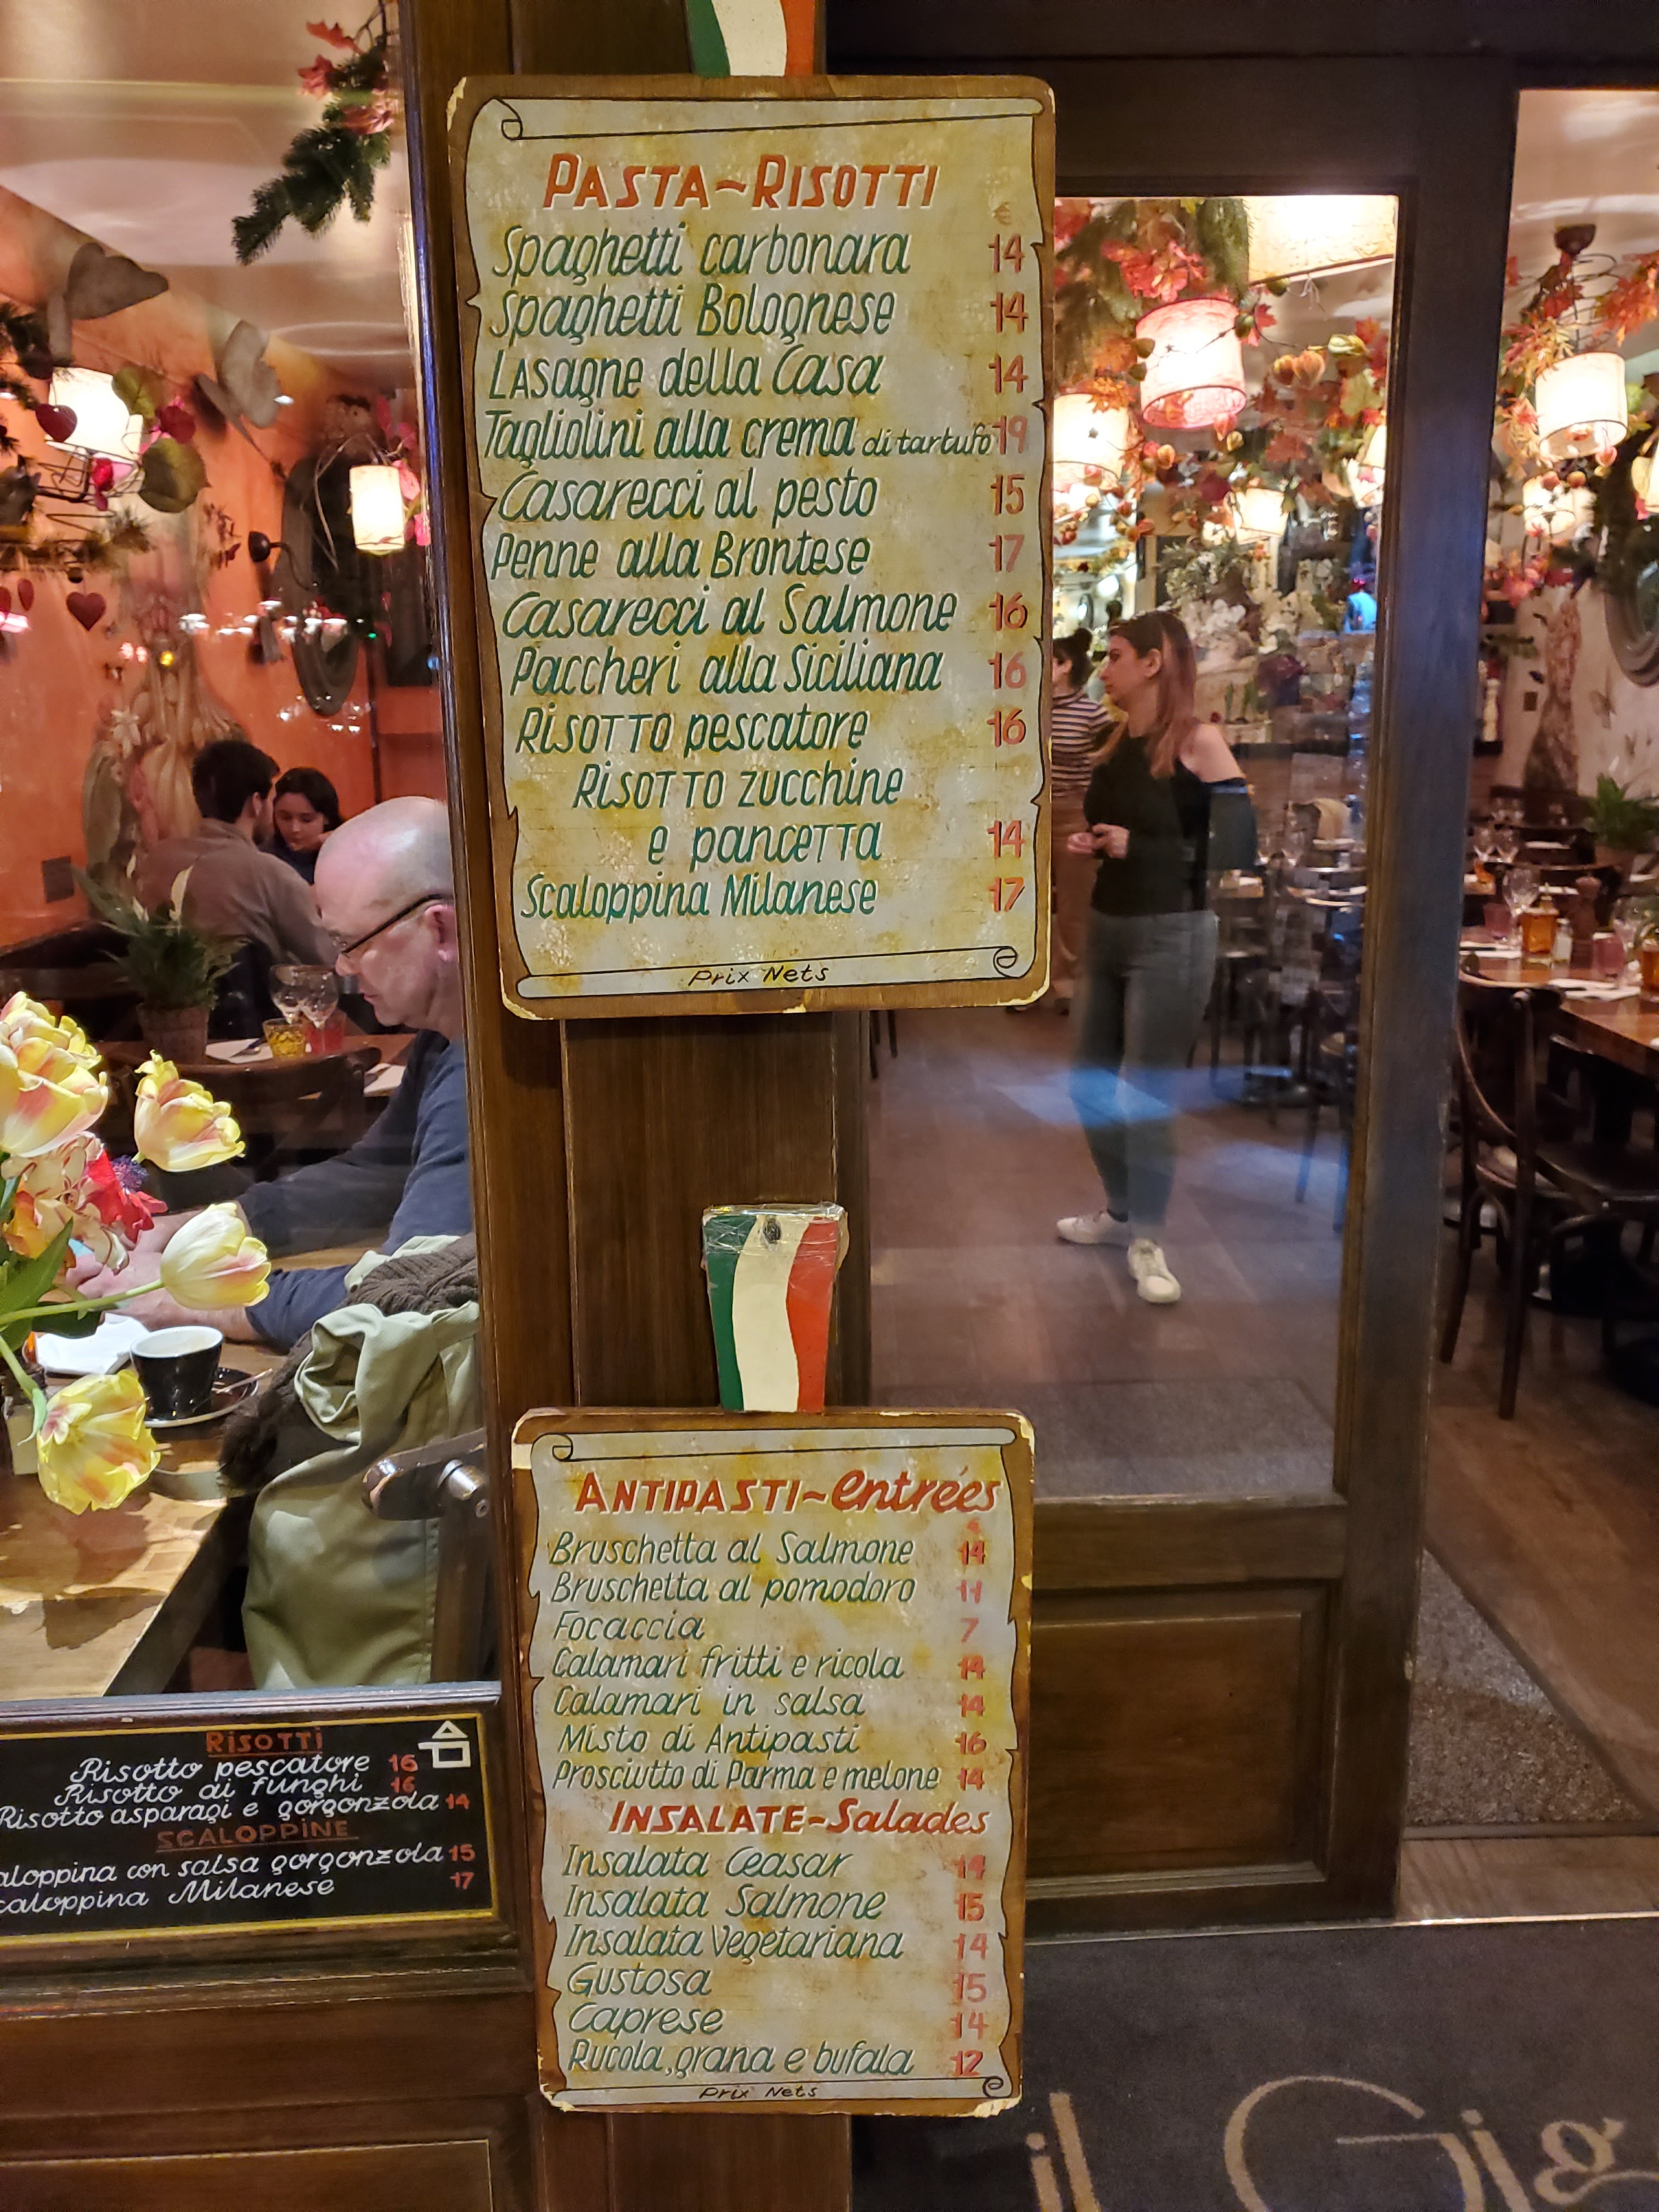 PASTA~RISOTTI
€
Spaghetti carbonara 14
Spaghetti Bolognese 14
LASagne della Casa 14
Tagliolini alla crema di tartufo 19
Casarecci al pesto 15
Penne alla Brontese 17
Casarecci al Salmone 16
Paccheri alla Siciliana 16
RISOTTO pescatore 16
RISOTTO zucchine
e pancetta 14
Scaloppina Milanese 17
Prix Nets
ANTIPASTI~entrées
€
Bruschetta al Salmone 14
Bruschetta al pomodoro 11
Focaccia 7
Calamari fritti e ricola 14
Calamari in salsa 14
Misto di Antipasti 16
Prosciutto di Parma e melone 14
INSALATE-Salades
Insalata Ceasar 14
Insalata Salmone 15
Insalata Vegetariana 14
Gustosa 15
Caprese 14
Rucola, grana e bufala 12
Prix Nets
RISOTTI
Risotto pescatore 16
Risotto ai funghi 16
Risotto asparagi e gorgonzola 14
SCALOPPINE
aloppina con salsa gorgonzola 15
caloppina Milanese 17
il Gio